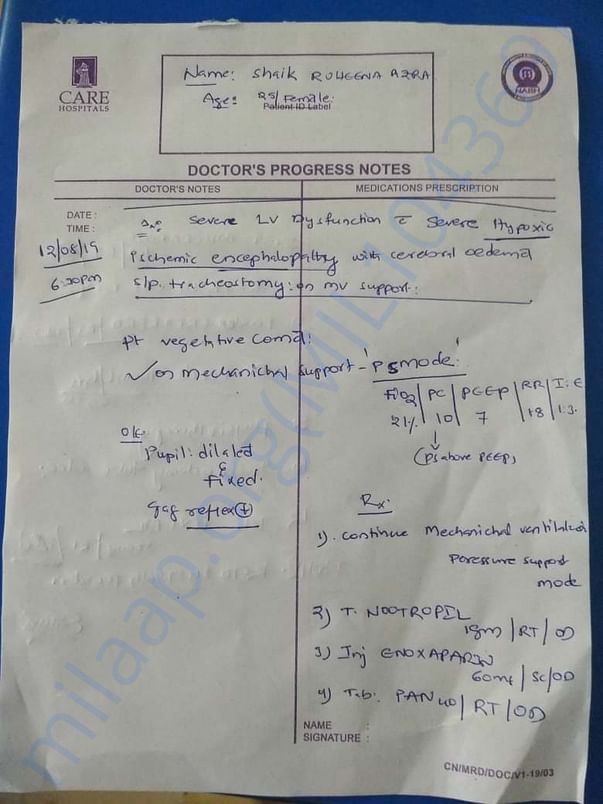 CARE
HOSPITALS
Name: Shaik RUHEENA AZRA
Age: 25/Female.
Patient ID Label
NABH
DOCTOR'S PROGRESS NOTES
DOCTOR'S NOTES
MEDICATIONS PRESCRIPTION
DATE :
TIME :
12/08/19
Severe LV Dysfunction c Severe Hypoxic
Ischemic encephalopathy with cerebral oedema
S/p. tracheostomy: on mv support:
Pt vegetative coma:
✓ on mechanichal support - 'PS mode:'
FiO2 | PC | PEEP | RR | I:E
21% | 10 | 7 | 18 | 1:3
↓
(PS above PEEP)
O/E
Pupil: dilated
&
Fixed.
Gag reflex (+)
Rx.
1). Continue Mechanichal ventilator
Poressure support
mode
2) T. NOOTROPIL
1gm | RT | OD
3) Inj ENOXAPARIN
60mg | SC/OD
4) Tab. PAN 40 | RT | OD
NAME :
SIGNATURE :
CN/MRD/DOC/V1-19/03
milaap.org(MIL1104360